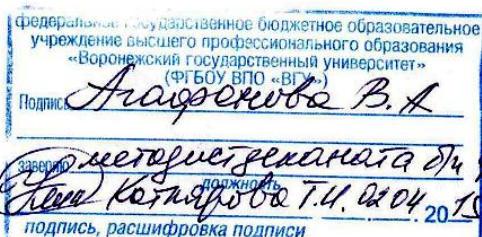 федеральное государственное бюджетное образовательное
учреждение высшего профессионального образования
«Воронежский государственный университет»
(ФГБОУ ВПО «ВГУ»)
Подпись Агафонова В.А
заверяю методист деканата б/ч
должность
Котлярова Т.И. 02 04. 2015
подпись, расшифровка подписи